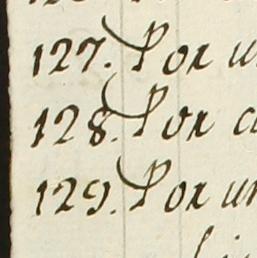 127. Por u
128. Por c
129. Por un